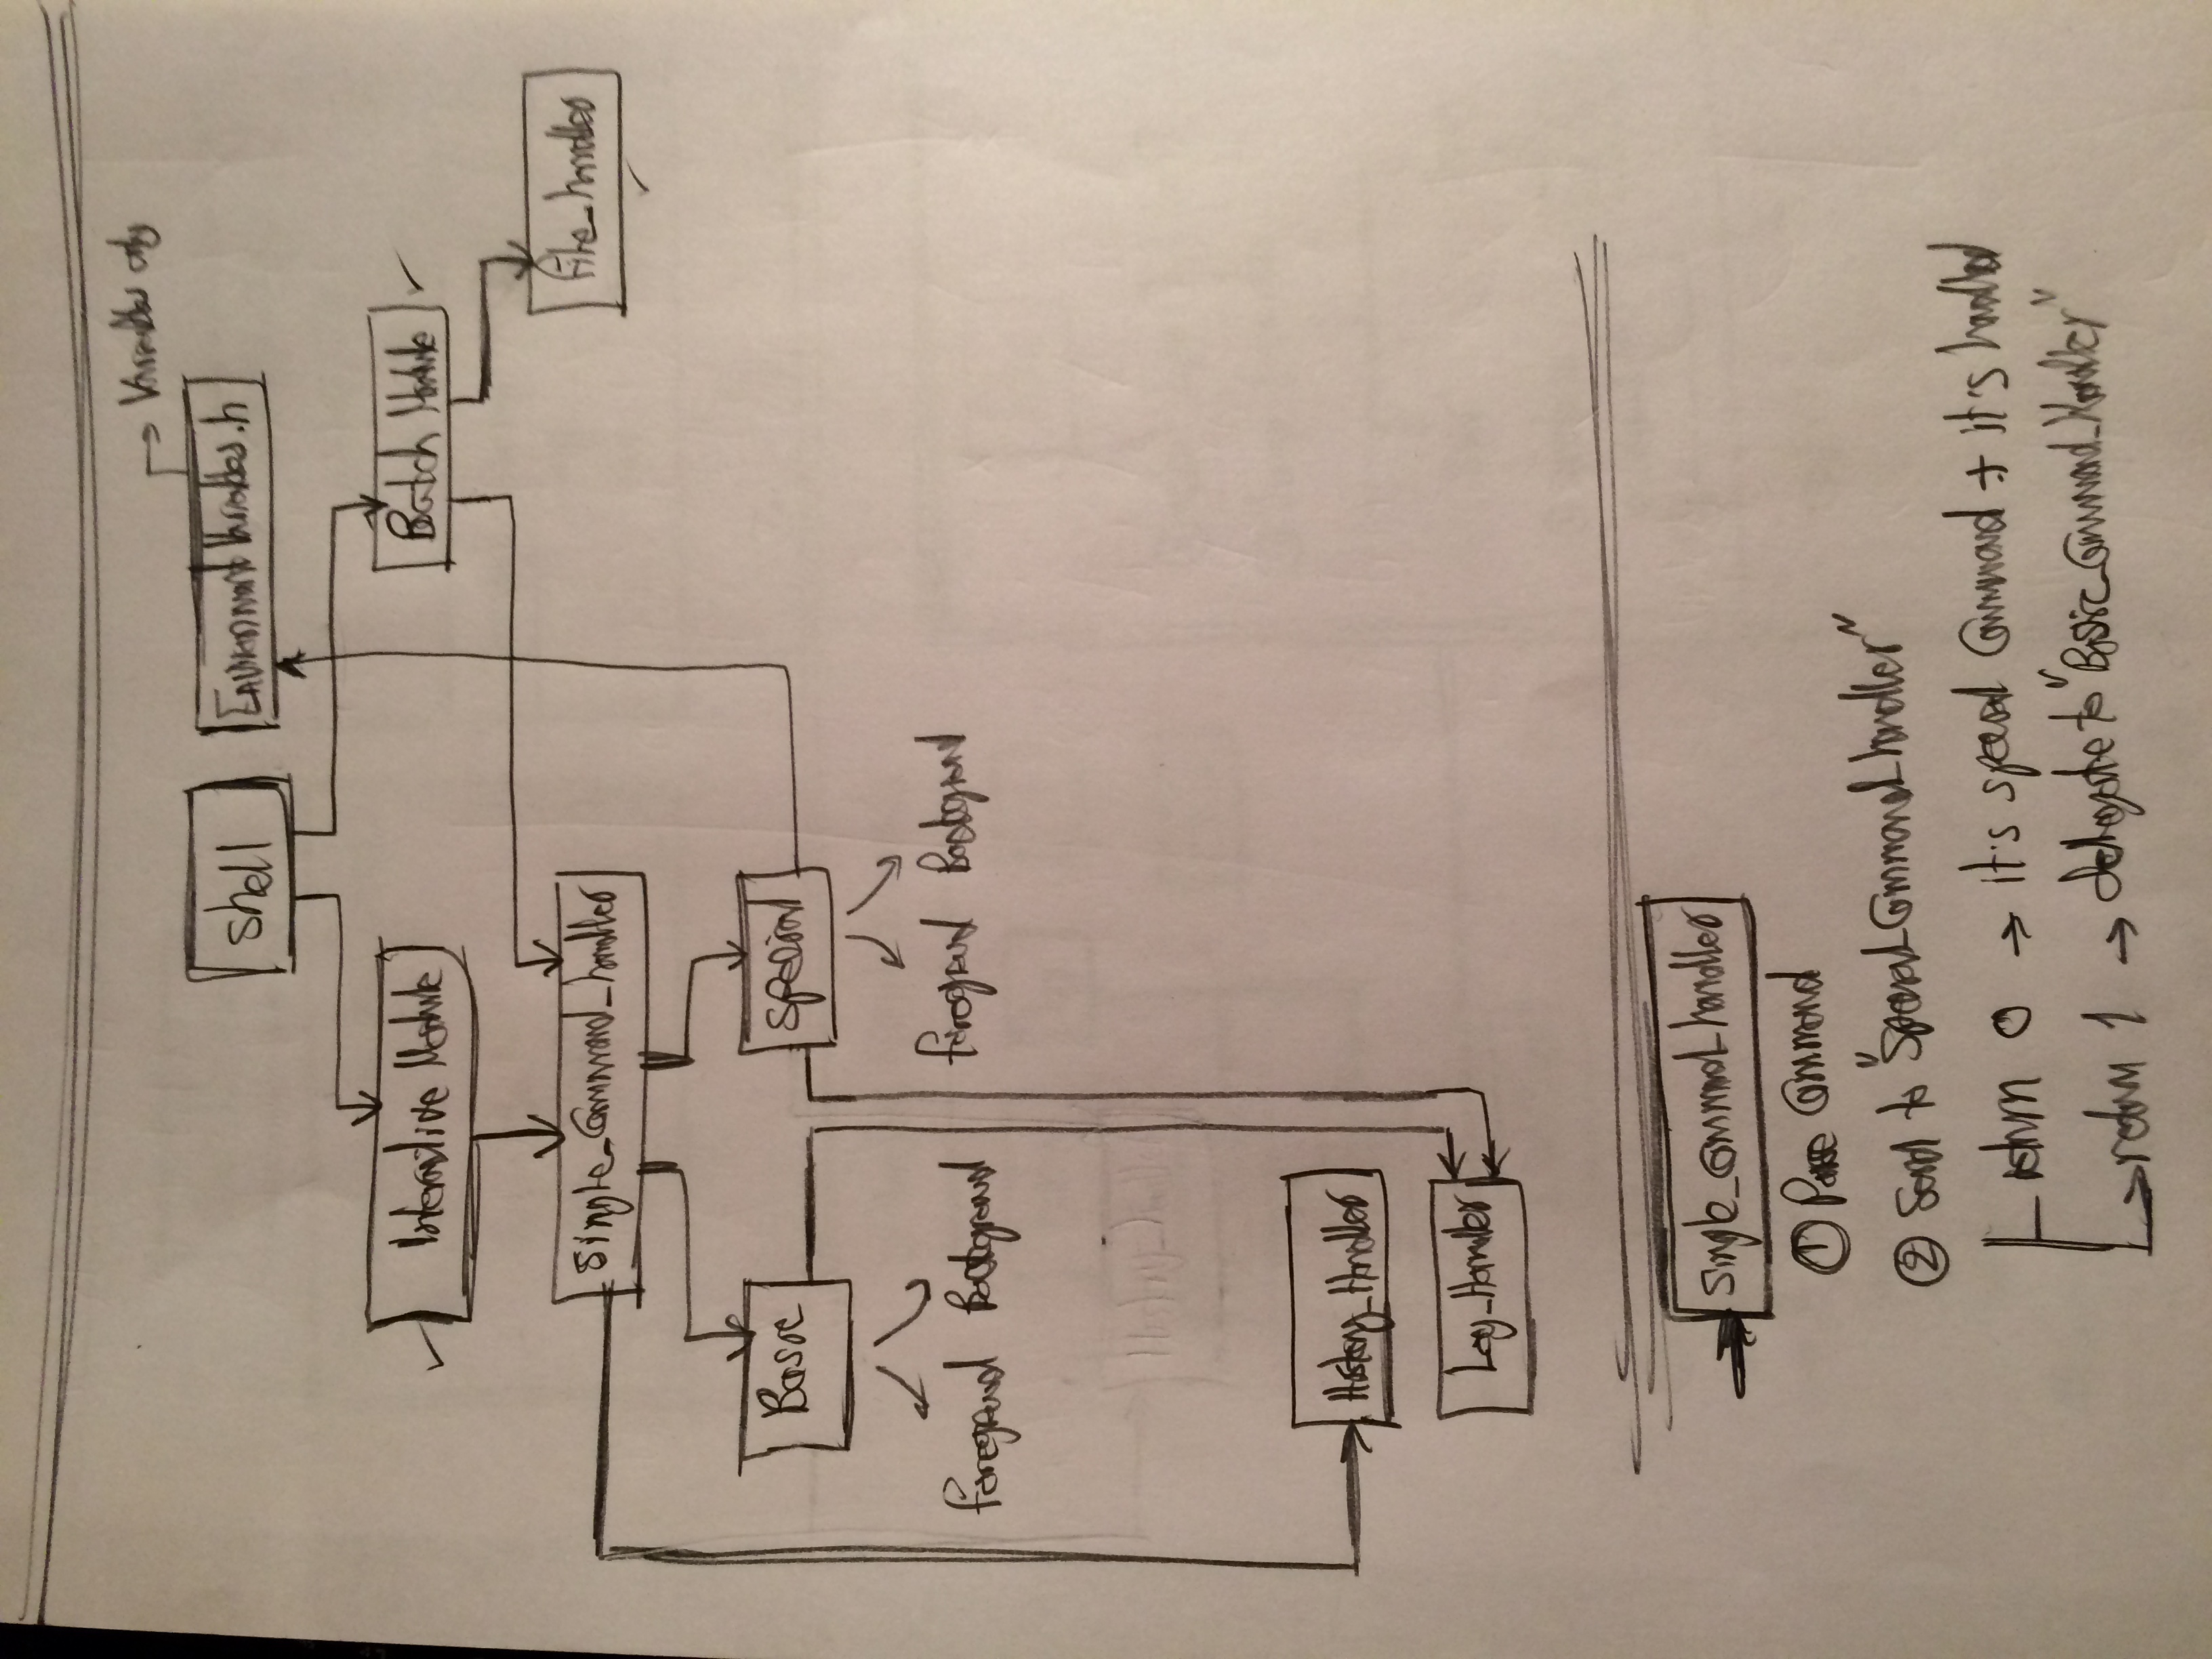 Variables only
Shell
EnvironmentVariables.h
Interactive Module
Batch Module
Single_Command_handler
file_handler
Basic
Special
foreground Background
foreground Background
History_Handler
Log_Handler
Single_Command_handler
① Parse Command
② Send to "Special_Command_handler"
return 0 → it's special Command + it's handled
return 1 → delegate to "Basic_Command_Handler"